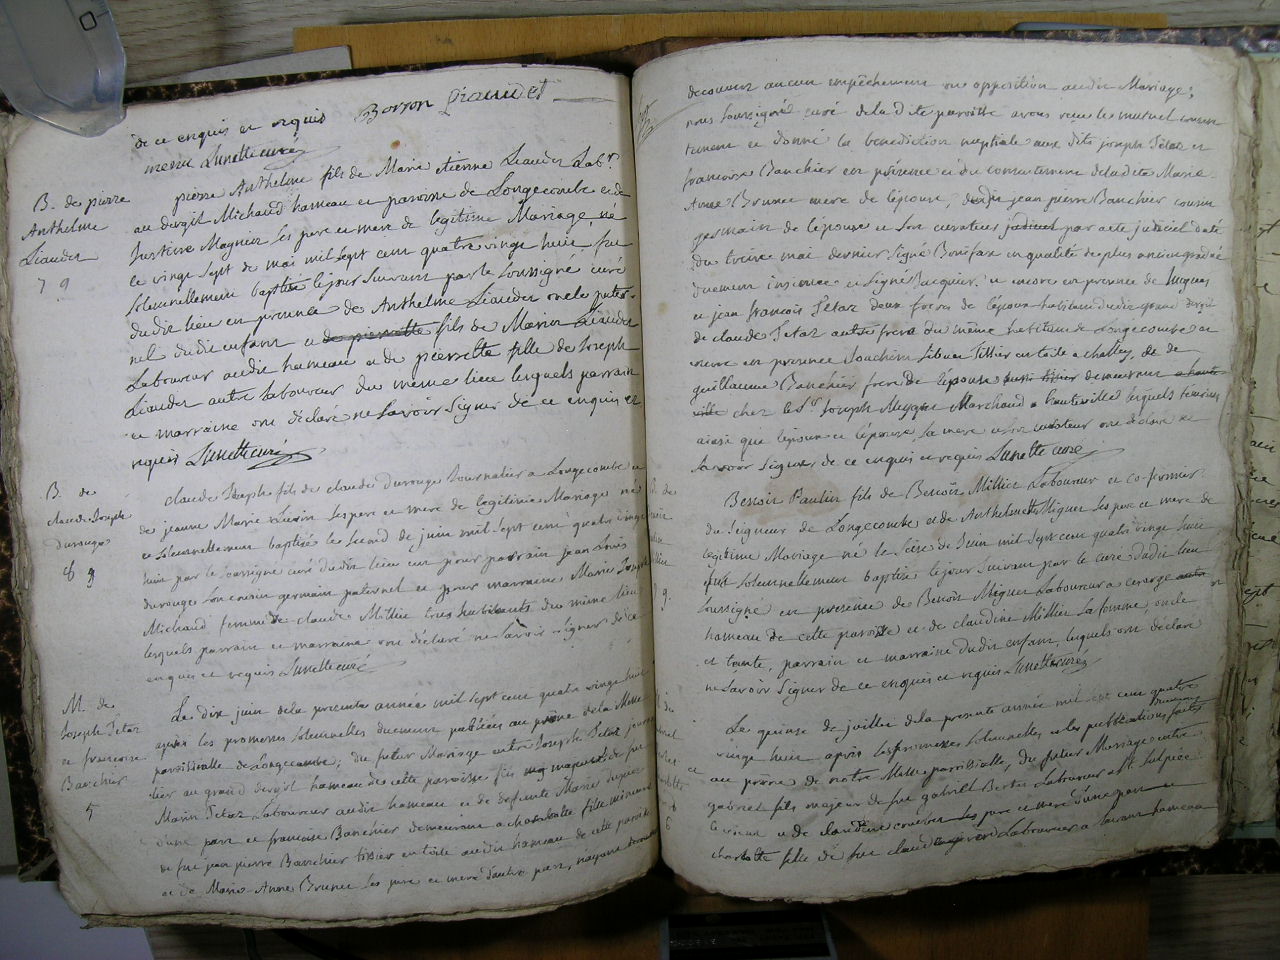 de ce enquis et requis Borron Grandet
mesur Lunette curé
B. de pierre
Anthelme
Leander
79
pierre Anthelme fils de Marie etienne Leander Lab.r
au dergit Michaud hameau et paroisse de Longecombe et de
Justine Magnin Les pere et mere de legitime Mariage, né
le vingt Sept de mai mil Sept cent quatre vingt huit, fut
Solennellement baptisé le jour Suivant par le Soussigné curé
dudit lieu en présence de Anthelme Leander oncle pater-
nel dudit enfant et de pierrette fils de Marin Leander
Laboureur audit hameau et de pierrette fille de Joseph
Leander autre Laboureur du même lieu lesquels parrain
et marraine ont déclaré ne Savoir Signer de ce enquis et
requis Lunette curé
B. de
claude Joseph
durouge
89
claude Joseph fils de claude Durouge Journalier a Longecombe et
de jeanne Marie Les pere et mere de legitime Mariage né
et Solennellement baptisé le Second de juin mil Sept cent quatre vingt
huit par le Soussigné curé dudit lieu eut pour parrain jean Louis
durouge Son cousin germain paternel et pour marraine Marie Josephe
Michaud femme de claude Millier tous habitants du même lieu
lesquels parrain et marraine ont déclaré ne Savoir Signer de ce
enquis et requis Lunette curé
M. de
Joseph Tetaz
et francoise
Banchier
5
Le dix juin de la presente année mil Sept cent quatre vingt huit
après les promesses Solennelles duement publiées au prône de la Messe
paroissialle de Longecombe, du futur Mariage entre Joseph Tetaz journa-
lier au grand dergit hameau de cette paroisse fils majeur de feu
Marin Tetaz Laboureur audit hameau et de defunte Marie
d'une part et francoise Banchier demeurant a fille mineure
de feu jean pierre Banchier tissier en toile audit hameau de cette paroisse
et de Marie-Anne Brunet Les pere et mere d'autre part, n'ayant
decouvert aucun empêchement ou opposition audit Mariage;
nous Soussigné curé de la dite paroisse avons reçu le mutuel consen
tement et donné la benediction nuptiale aux dits joseph Tetaz et
francoise Banchier en présence et du consentement de la dite Marie-
Anne Brunet mere de l'épouse, de jean pierre Banchier cousin
germain de l'épouse et Son curateur par acte judiciel daté
du treize mai dernier Signé Bonifax en qualité de plus ancien gradué
duement insinué et Signé Jacquier, et encore en presence de Jacques
et jean francois Tetaz deux freres de l'époux habitans dudit grand dergit
de claude Tetaz autre frere du même habitant de Longecombe et
encore en presence Joachim Tissier en toile a challey, de
guillaume Banchier frere de l'épouse demeurant a haute
ville chez le S.r Joseph Marchand a hauteville lesquels temoins
ainsi que l'époux et l'épouse Sa mere et Son curateur ont déclaré ne
Savoir Signer de ce enquis et requis Lunette curé
Benoit Paulin fils de Benoit Millier Laboureur et co-fermier
du Seigneur de Longecombe et de Anthelmette Miguet Les pere et mere de
legitime Mariage né le Seize de Juin mil Sept cent quatre vingt huit
fut Solennellement baptisé le jour Suivant par le curé dudit lieu
Soussigné en presence de Benoit Miguet Laboureur a
hameau de cette paroisse et de claudine Millier Sa femme, oncle
et tante, parrain et marraine dudit enfant, lesquels ont déclaré
ne Savoir Signer de ce enquis et requis Lunette curé
Le quinze de juillet de la presente année mil Sept cent quatre
vingt huit après les promesses Solennelles et les publications faites
au prône de notre Messe paroissialle, du futur Mariage entre
gabriel fils majeur de feu gabriel Laboureur a St. Sulpice
le vieux et de claudine Les pere et mere d'une part et
charlotte fille de feu claude Laboureur a hameau